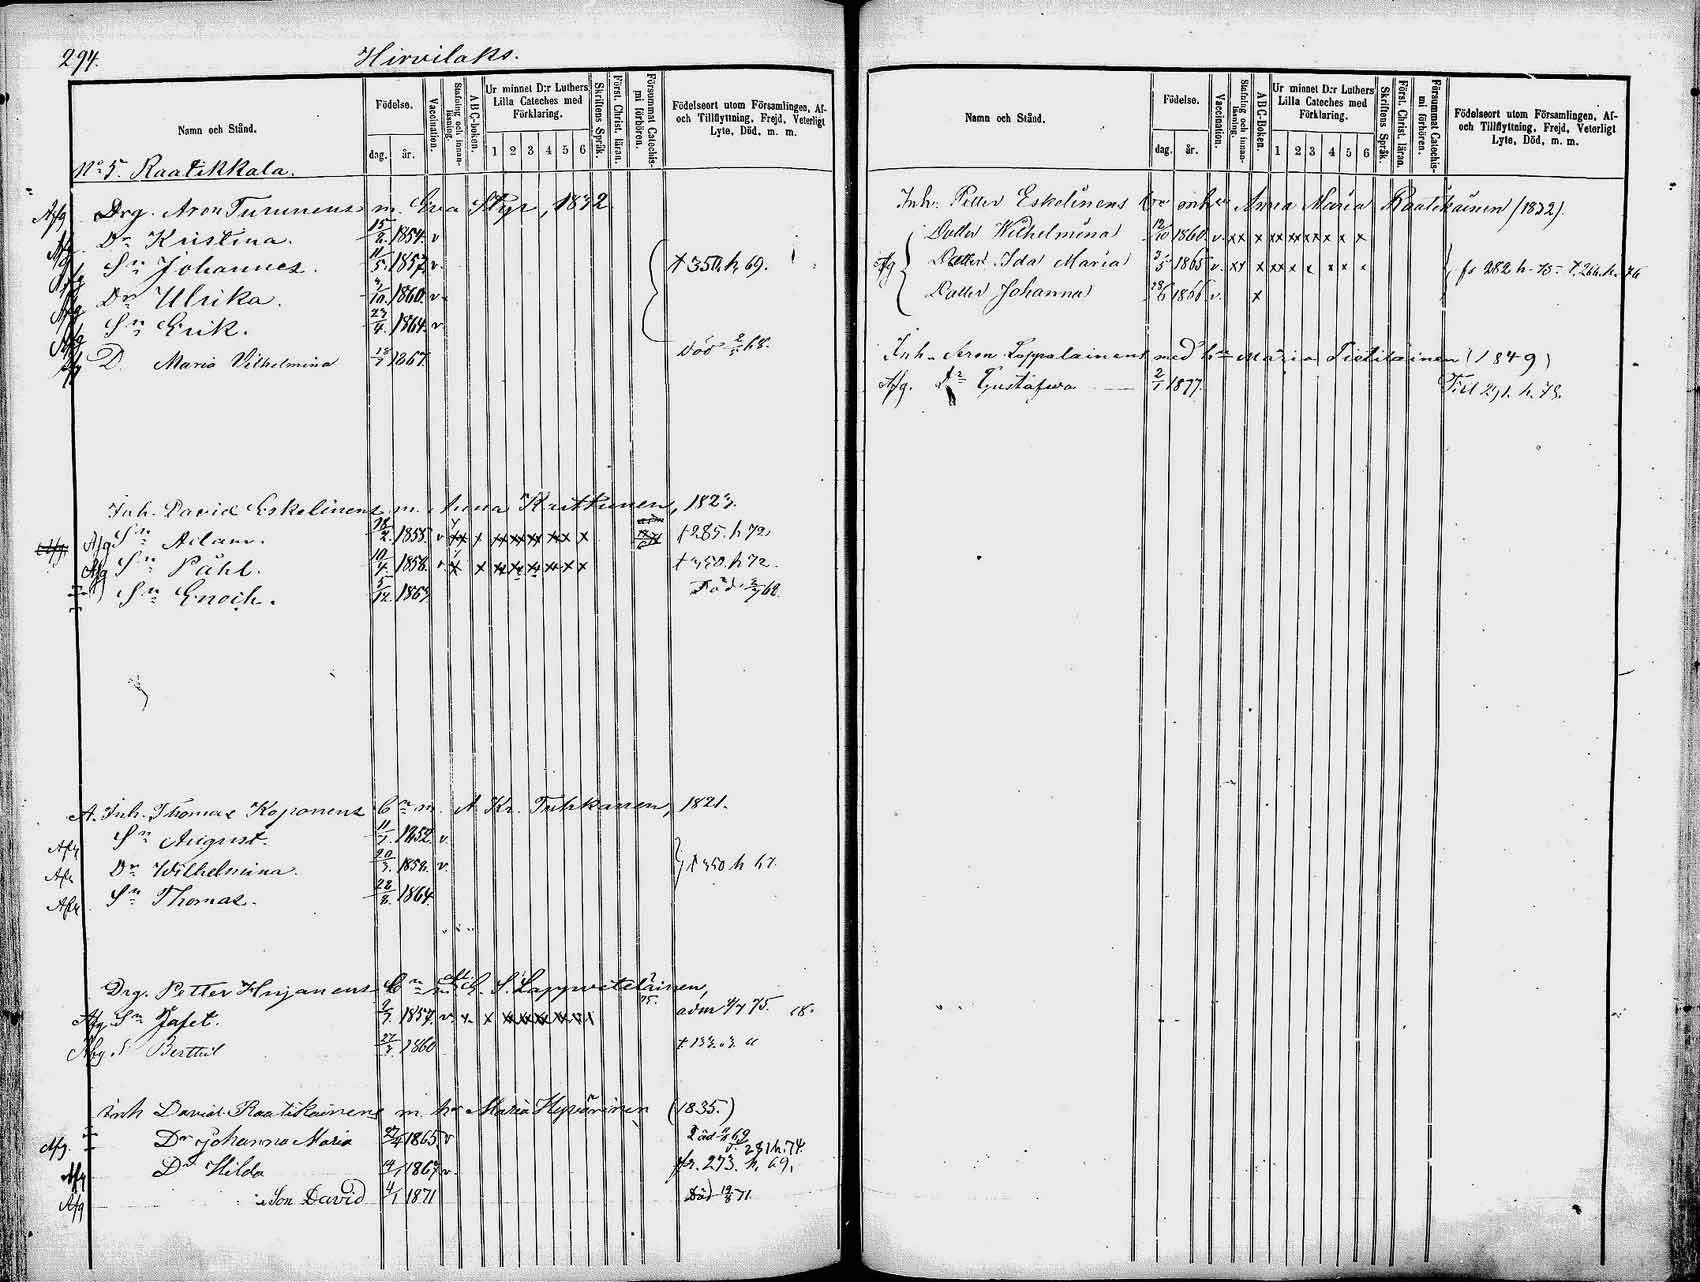 294.
Hirvilaks.
Namn och Stånd.
Födelse.
dag. år.
Vaccination.
Stafning och innan-läsning.
A B C-boken.
Ur minnet D:r Luthers Lilla Cateches med Förklaring.
1 2 3 4 5 6
Skriftens Språk.
Först. Christ. läran.
Försummat Catechis-mi förhören.
Födelseort utom Församlingen, Af- och Tillflyttning, Frejd, Veterligt Lyte, Död, m. m.
No 5. Raatikkala.
Afg Drg. Aron Turunens m. Eva Styr, 1832
Afg Dr Kristina. 15/2. 1854. v
Afg Sn Johannes. 11/5. 1857. v. † 350. h. 69.
Afg Dr Ulrika. 1860. v
Afg Sn Erik. 23/4. 1864. v
Afg D. Maria Vilhelmina 1867. Död 68.
Inh. David Eskelinens m. Anna Kuittunen, 1823.
Afg Sn Adam. 18/2. 1855. v x x xx xx xx xx x † 285. h 72
Afg Sn Påhl. 10/4. 1858. v. x x xx xx xx xx x x † 350. h 72.
Sn Enoch. 5/12. 1863 Död 68
A. Inh. Thomas Koponens Bn m. A. Kr. Tuhkanen, 1821.
Afg Sn August. 11/7. 1852. v.
Afg Dr Wilhelmina. 20/3. 1858. v. † 350 h 67.
Afg Sn Thomas. 22/8. 1864.
Drg. Petter Hujanens Bn m. E. S. Lappveteläinen,
Afg. Sn Jafet. 1857. v. x. x xx xx xx xx adm 75. 18.
Afg. S Berttil 27/3. 1860
Inh David Raatikainens m. hu Maria Hyvärinen (1835.)
Afg. Dr Johanna Maria 1865 v Död 69
Afg Dr Hilda 1867 v fr. 273. h. 69. 281 h. 74.
Afg Son David 4/1 1871 Död 19/8 71.
Namn och Stånd.
Födelse.
dag. år.
Vaccination.
Stafning och innan-läsning.
A B C-Boken.
Ur minnet D:r Luthers Lilla Cateches med Förklaring.
1 2 3 4 5 6
Skriftens Språk.
Först. Christ. läran.
Försummat Catechis-mi förhören.
Födelseort utom Församlingen, Af- och Tillflyttning, Frejd, Veterligt Lyte, Död, m. m.
Inh. Petter Eskelinens Anna Maria Raatikainen (1832).
Dotter Wilhelmina 12/10 1860. v. xx x x xx xx x x x x
Afg Dotter Ida Maria 1865 v. xx x xx x x x x x fr 282 h. 73 - † 266. h. 76
Dotter Johanna 1866 v. x
Inh. Aron Lappalainens med hu Maria Tietiläinen (1849)
Afg. Dr Gustafwa 2/1 1877. Till 291. h. 78.